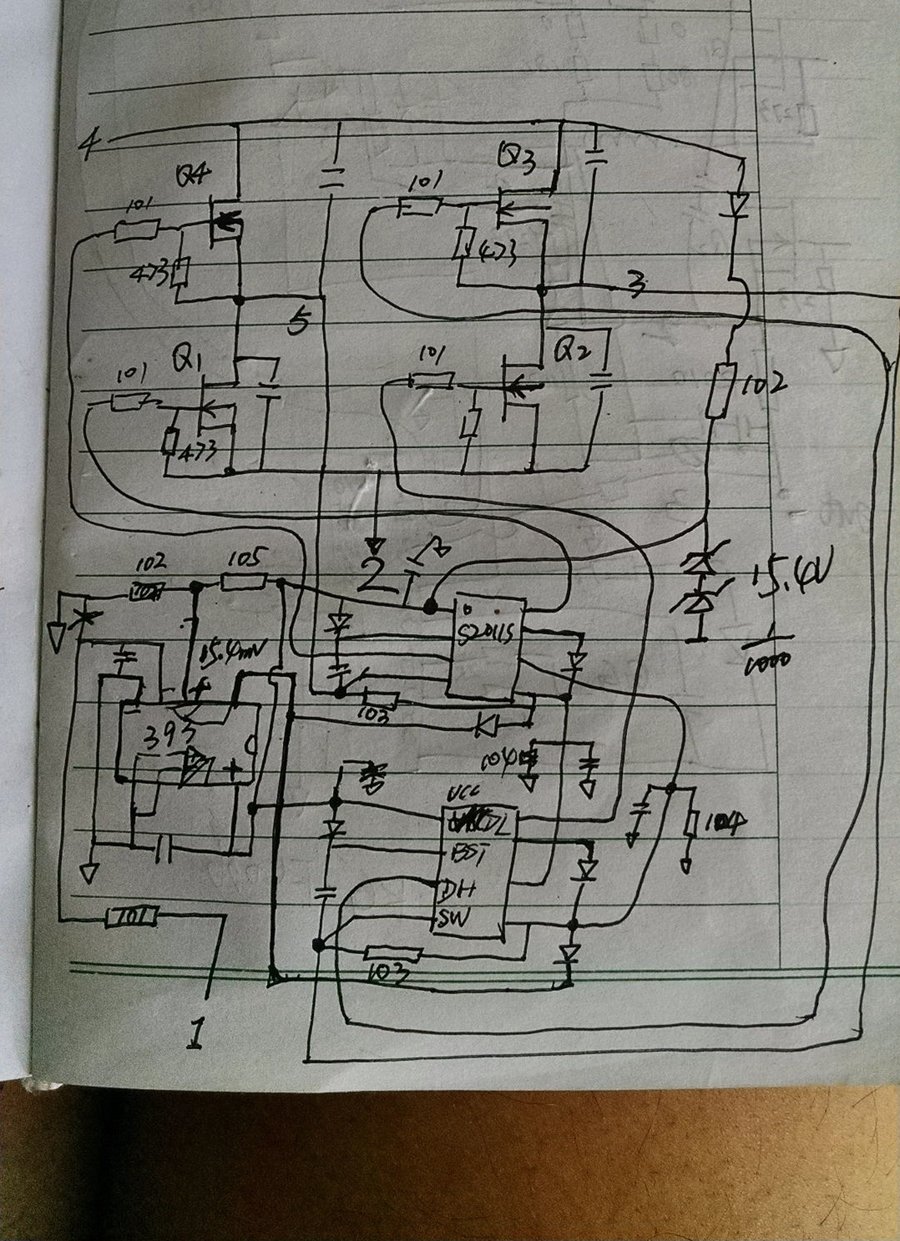 4
Q4
Q3
101
101
473
473
3
5
Q1
Q2
101
101
102
473
2
102
105
15.4V
S2011S
1000
15.4mV
103
393
104
VCC
DL
104
BST
DH
SW
101
103
1